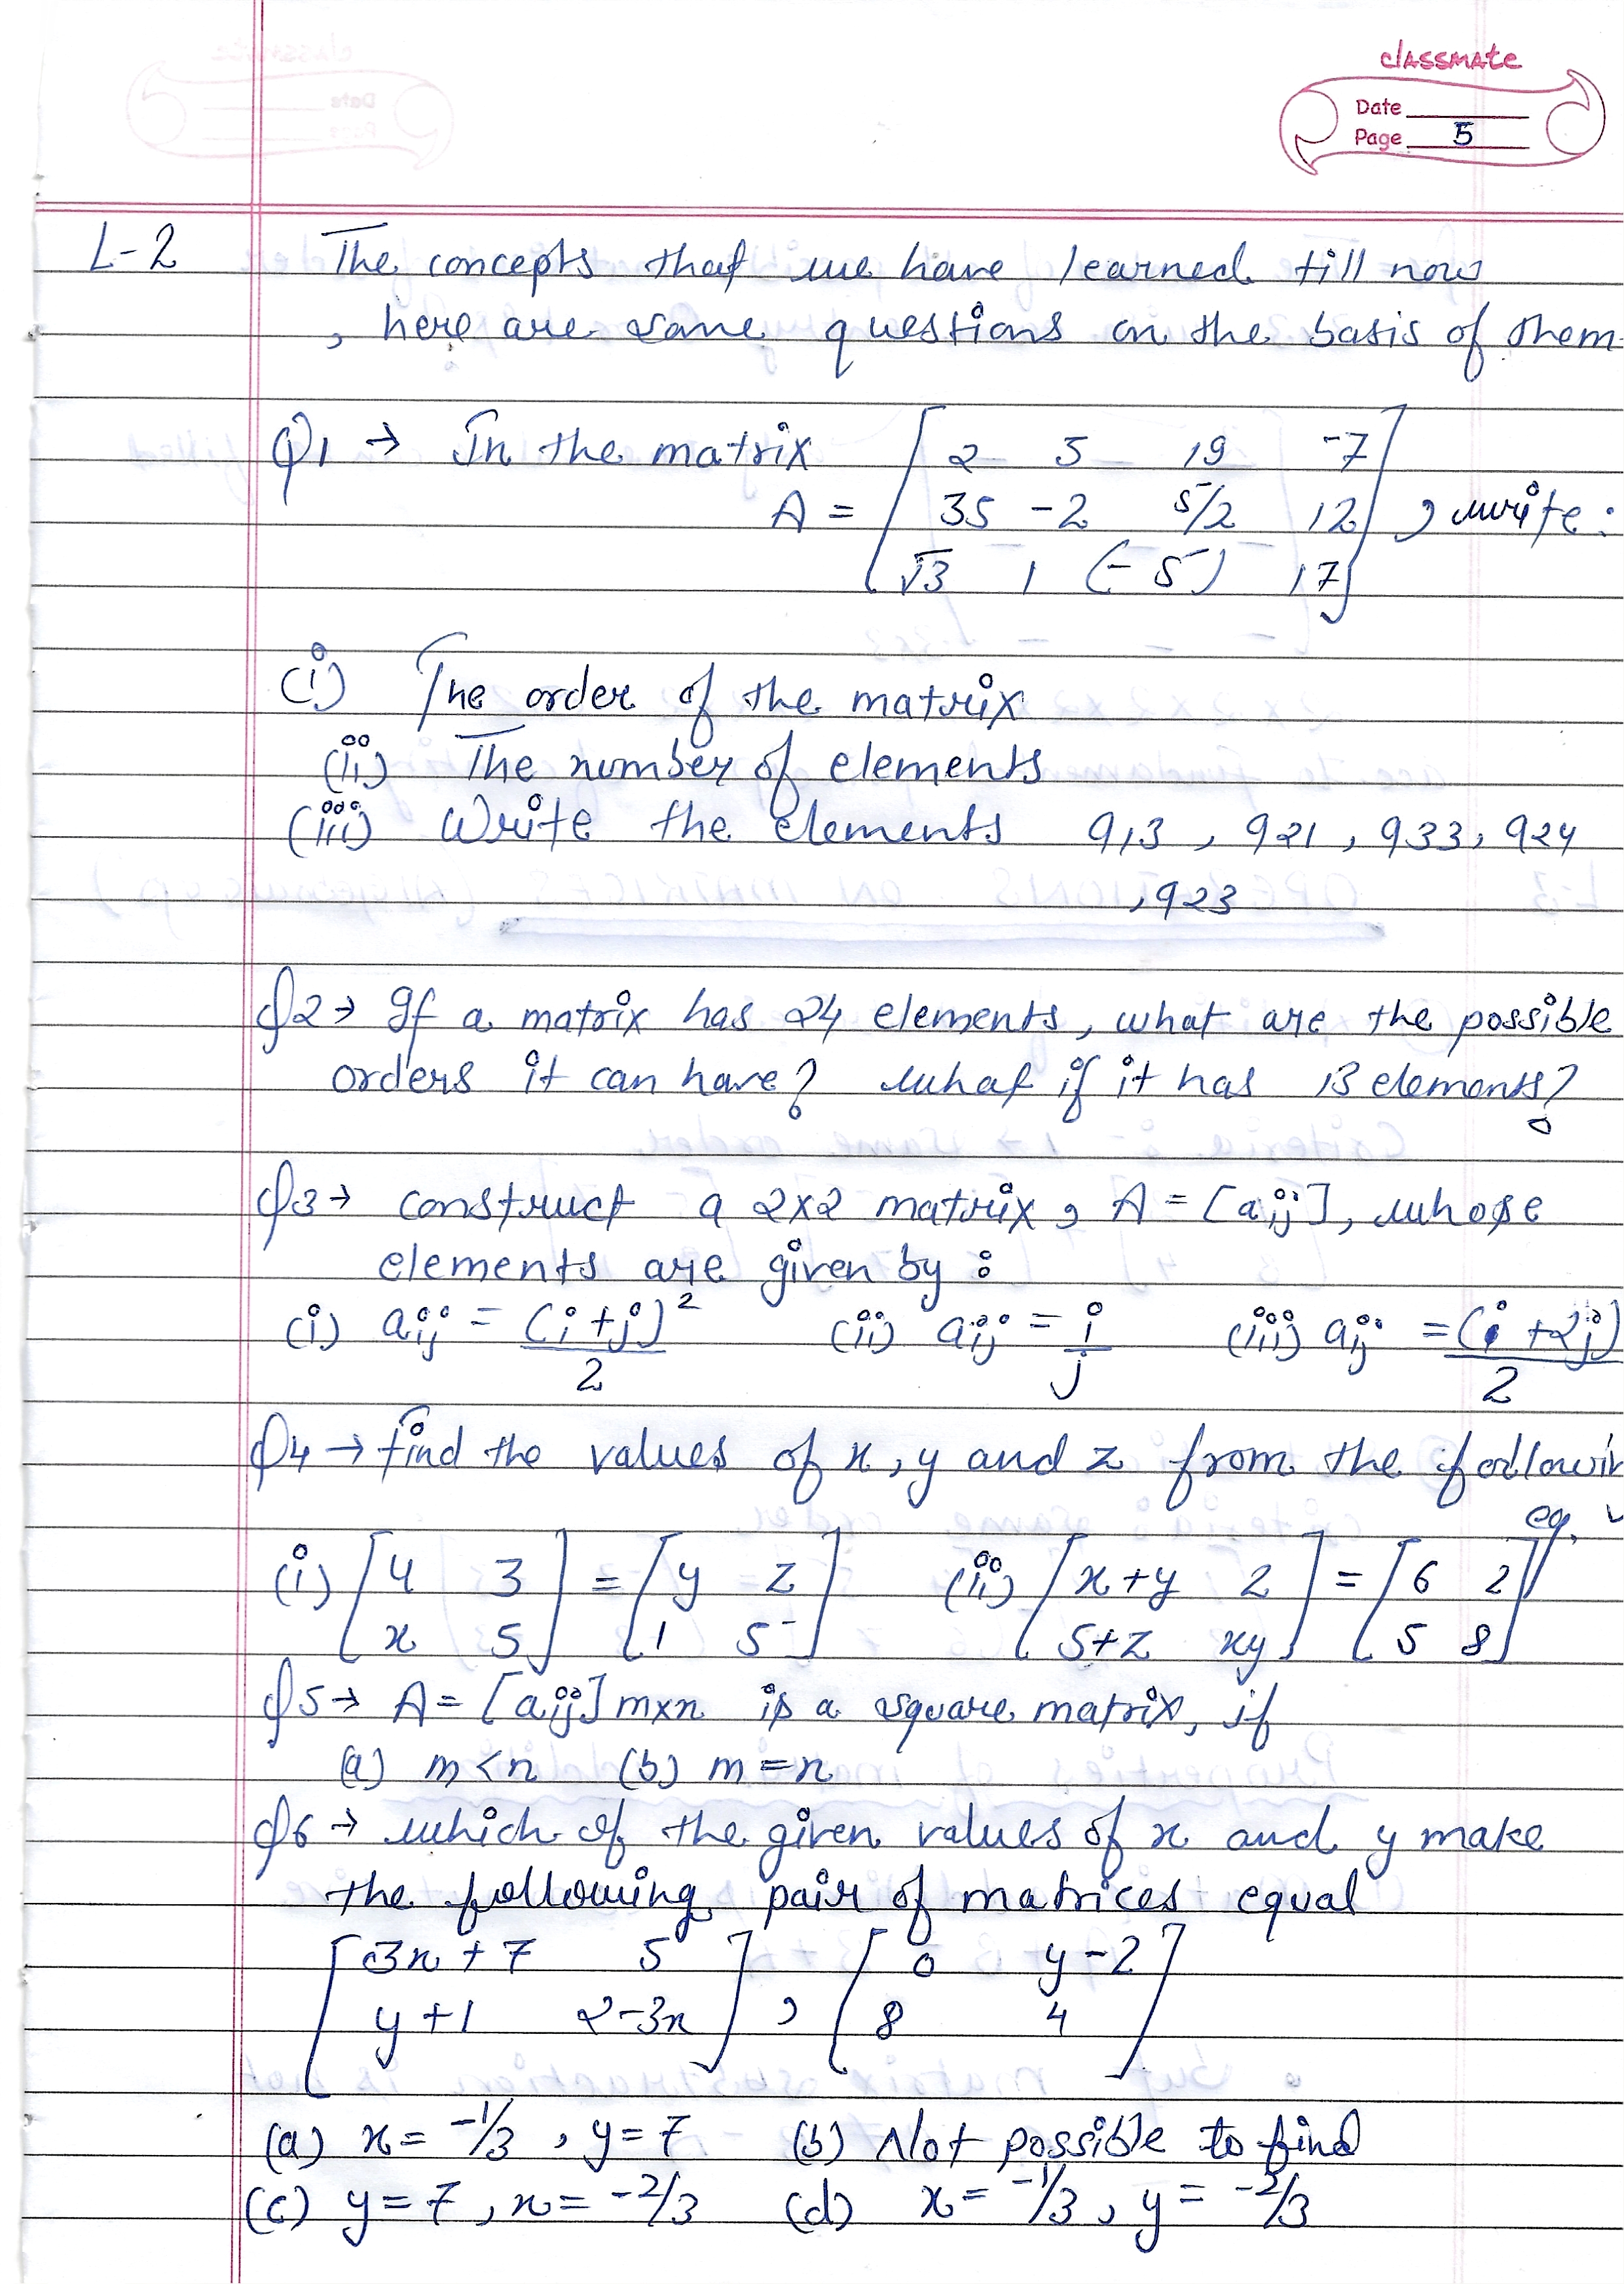 classmate
Date
Page 5
L-2 The concepts that we have learned till now
, here are some questions on the basis of them
Q1 → In the matrix
A = [2 5 19 -7
35 -2 5/2 12
√3 1 (-5) 17] , write:
(i) The order of the matrix
(ii) The number of elements
(iii) Write the elements a13, a21, a33, a24
, a23
Q2 → If a matrix has 24 elements, what are the possible
orders it can have? What if it has 13 elements?
Q3 → construct a 2x2 matrix, A = [aij], whose
elements are given by :
(i) aij = (i+j)²/2 (ii) aij = i/j (iii) aij = (i+2j)/2
Q4 → find the values of x, y and z from the followin
eq.
(i) [4 3 = [y z (ii) [x+y 2 = [6 2
x 5] 1 5] 5+z xy] 5 8]
Q5 → A = [aij] mxn is a square matrix, if
(a) m<n (b) m=n
Q6 → which of the given values of x and y make
the following pair of matrices equal
[3x+7 5 [0 y-2
y+1 2-3x] , 8 4]
(a) x = -1/3, y=7 (b) Not possible to find
(c) y=7, x=-2/3 (d) x = -1/3, y = -2/3